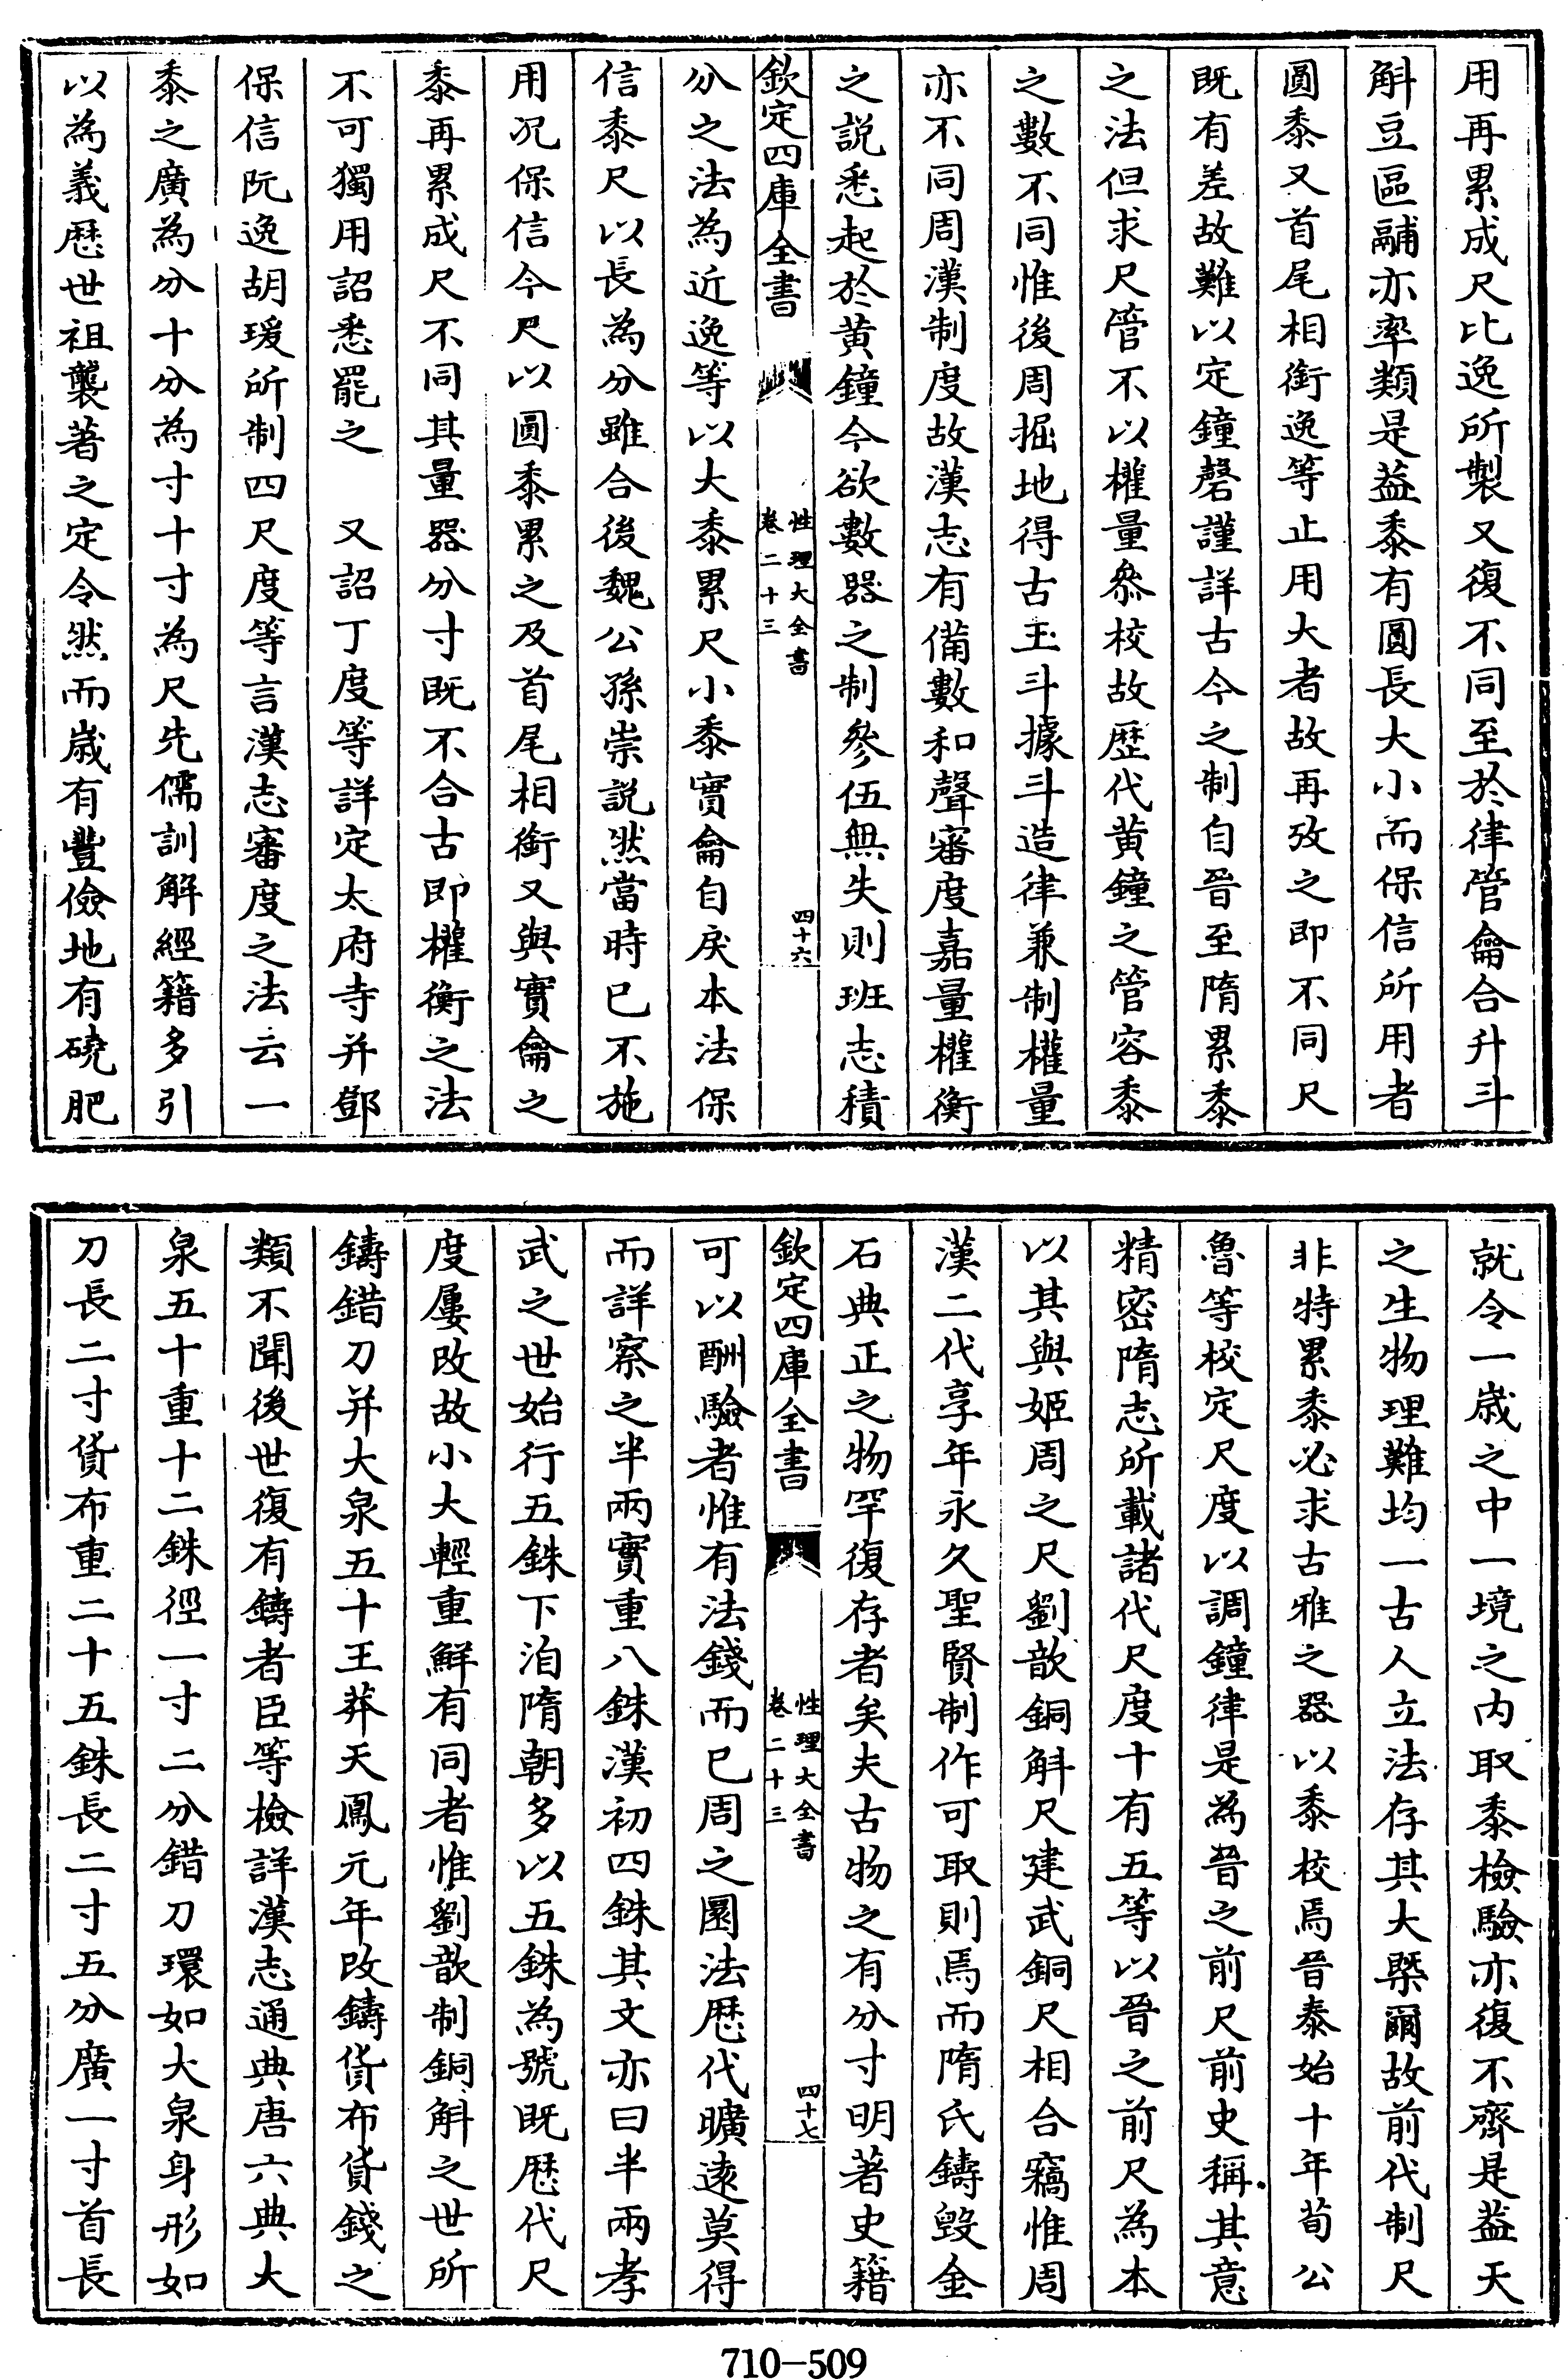 用再累成尺比逸所製又復不同至於律管龠合升斗
斛豆區鬴亦率類是葢黍有圓長大小而保信所用者
圓黍又首尾相銜逸等止用大者故再攷之即不同尺
既有差故難以定鐘磬謹詳古今之制自晉至隋累黍
之法但求尺管不以權量叅校故歴代黄鐘之管容黍
之數不同惟後周掘地得古玉斗據斗造律兼制權量
亦不同周漢制度故漢志有備數和聲審度嘉量權衡
之説悉起於黄鐘今欲數器之制參伍無失則班志積
欽定四庫全書 性理大全書 卷二十三 四十六
分之法為近逸等以大黍累尺小黍實龠自戾本法保
信黍尺以長為分雖合後魏公孫崇説然當時已不施
用况保信今尺以圓黍累之及首尾相銜又與實龠之
黍再累成尺不同其量器分寸既不合古即權衡之法
不可獨用詔悉罷之 又詔丁度等詳定太府寺并鄧
保信阮逸胡瑗所制四尺度等言漢志審度之法云一
黍之廣為分十分為寸十寸為尺先儒訓解經籍多引
以為義歴世祖襲著之定令然而歲有豐儉地有磽肥
就令一歲之中一境之内取黍檢驗亦復不齊是葢天
之生物理難均一古人立法存其大槩爾故前代制尺
非特累黍必求古雅之器以黍校焉晉泰始十年荀公
魯等校定尺度以調鐘律是為晉之前尺前史稱其意
精密隋志所載諸代尺度十有五等以晉之前尺為本
以其與姬周之尺劉歆銅斛尺建武銅尺相合竊惟周
漢二代享年永久聖賢制作可取則焉而隋氏鑄毁金
石典正之物罕復存者矣夫古物之有分寸明著史籍
欽定四庫全書 性理大全書 卷二十三 四十七
可以酬驗者惟有法錢而已周之圜法歴代曠逺莫得
而詳察之半兩實重八銖漢初四銖其文亦曰半兩孝
武之世始行五銖下洎隋朝多以五銖為號既歴代尺
度屢改故小大輕重鮮有同者惟劉歆制銅斛之世所
鑄錯刀并大泉五十王莽天鳳元年改鑄貨布貨錢之
類不聞後世復有鑄者臣等檢詳漢志通典唐六典大
泉五十重十二銖徑一寸二分錯刀環如大泉身形如
刀長二寸貨布重二十五銖長二寸五分廣一寸首長
710-509